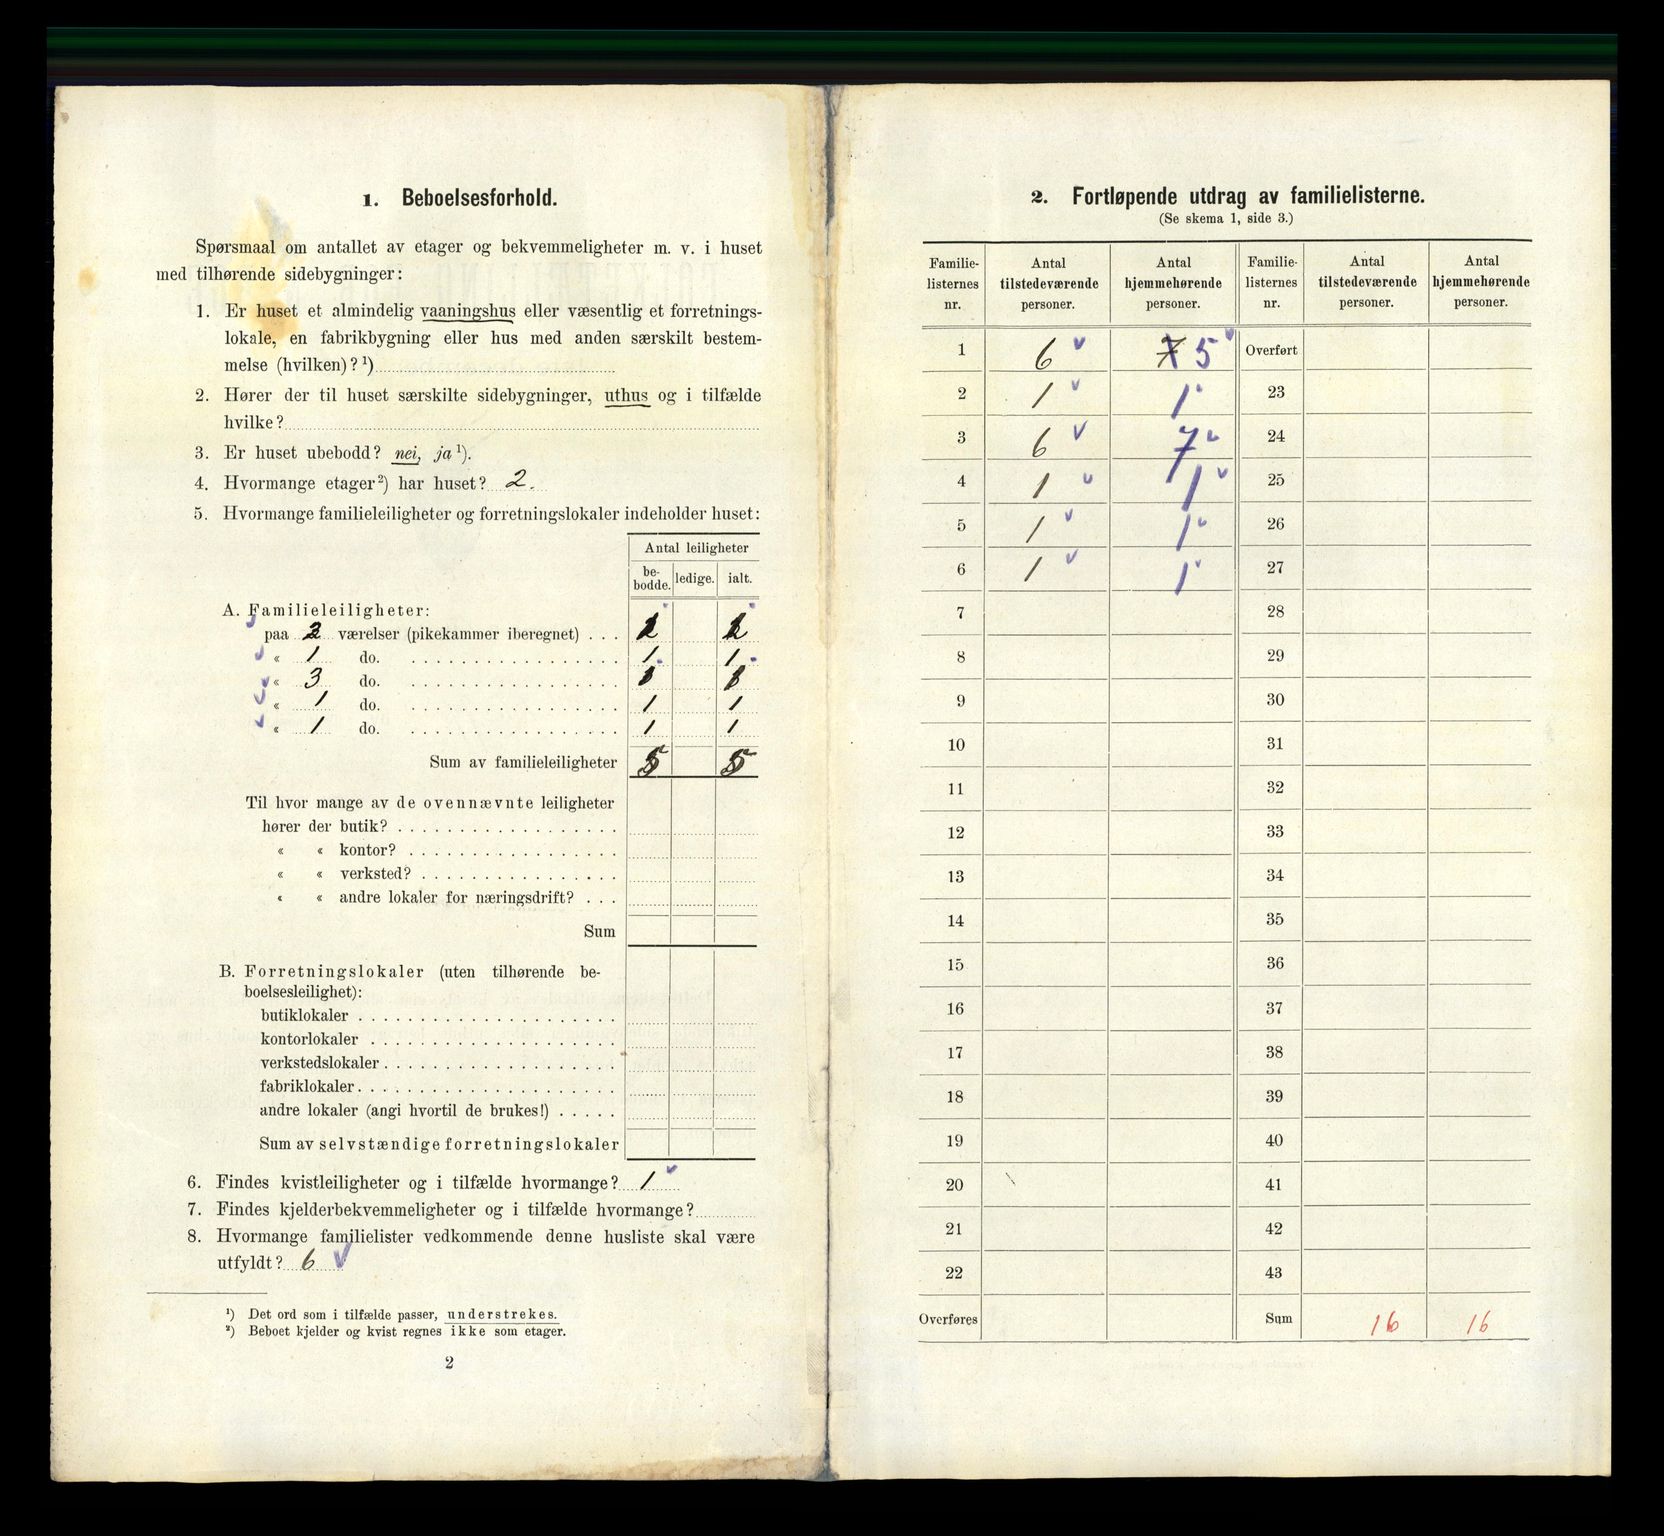 1. Beboelsesforhold.
Spørsmaal om antallet av etager og bekvemmeligheter m. v. i huset
med tilhørende sidebygninger:
1. Er huset et almindelig vaaningshus eller væsentlig et forretnings-
lokale, en fabrikbygning eller hus med anden særskilt bestem-
melse (hvilken)? ¹)
2. Hører der til huset særskilte sidebygninger, uthus og i tilfælde
hvilke?
3. Er huset ubebodd? nei, ja ¹).
4. Hvormange etager ²) har huset? 2.
5. Hvormange familieleiligheter og forretningslokaler indeholder huset:
Antal leiligheter
be-bodde. ledige. ialt.
A. Familieleiligheter:
paa værelser (pikekammer iberegnet) . . .
« 1 do. 1 1
« 3 do. 1 1
« 1 do. 1 1
« 1 do. 1 1
Sum av familieleiligheter 5 5
Til hvor mange av de ovennævnte leiligheter
hører der butik?
« « kontor?
« « verksted?
« « andre lokaler for næringsdrift? . . .
Sum
B. Forretningslokaler (uten tilhørende be-
boelsesleilighet):
butiklokaler
kontorlokaler
verkstedslokaler
fabriklokaler
andre lokaler (angi hvortil de brukes!)
Sum av selvstændige forretningslokaler
6. Findes kvistleiligheter og i tilfælde hvormange? 1
7. Findes kjelderbekvemmeligheter og i tilfælde hvormange?
8. Hvormange familielister vedkommende denne husliste skal være
utfyldt? 6
¹) Det ord som i tilfælde passer, understrekes.
²) Beboet kjelder og kvist regnes ikke som etager.
2
2. Fortløpende utdrag av familielisterne.
(Se skema 1, side 3.)
Familie-listernes nr. Antal tilstedeværende personer. Antal hjemmehørende personer. Familie-listernes nr. Antal tilstedeværende personer. Antal hjemmehørende personer.
1 6 7 5 Overført
2 1 1 23
3 6 7 24
4 1 1 25
5 1 1 26
6 1 1 27
7 28
8 29
9 30
10 31
11 32
12 33
13 34
14 35
15 36
16 37
17 38
18 39
19 40
20 41
21 42
22 43
Overføres Sum 16 16